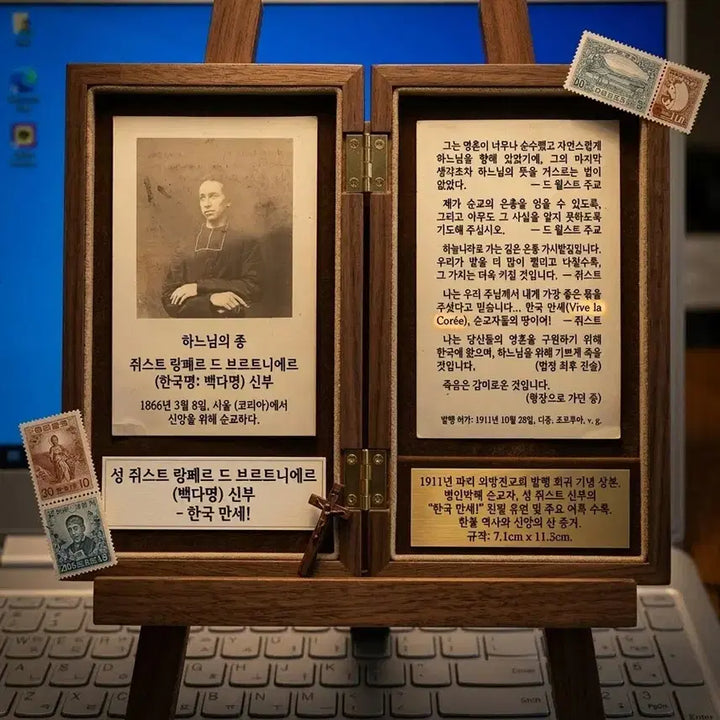 하느님의 종
쥐스트 랑페르 드 브르트니에르
(한국명: 백다명) 신부
1866년 3월 8일, 서울 (코리아)에서
신앙을 위해 순교하다.
성 쥐스트 랑페르 드 브르트니에르
(백다명) 신부
- 한국 만세!
그는 영혼이 너무나 순수했고 자연스럽게
하느님을 향해 있었기에, 그의 마지막
생각초차 하느님의 뜻을 거스르는 법이
없었다. — 드 월스트 주교
제가 순교의 은총을 입을 수 있도록,
그리고 아무도 그 사실을 알지 못하도록
기도해 주십시오. — 드 월스트 주교
하늘나라로 가는 길은 온통 가시밭길입니다.
우리가 발을 더 많이 찔리고 다칠수록,
그 가치는 더욱 커질 것입니다. — 쥐스트
나는 우리 주님께서 내게 가장 좋은 몫을
주셨다고 믿습니다... 한국 만세(Vive la
Corée), 순교자들의 땅이여! — 쥐스트
나는 당신들의 영혼을 구원하기 위해
한국에 왔으며, 하느님을 위해 기쁘게 죽을
것입니다. (법정 최후 진술)
죽음은 감미로운 것입니다.
(형장으로 가던 중)
발행 허가: 1911년 10월 28일, 디종, 조꼬루아, v. g.
1911년 파리 외방전교회 발행 희귀 기념 상본.
병인박해 순교자, 성 쥐스트 신부의
"한국 만세!" 친필 유언 및 주요 어록 수록.
한불 역사와 신앙의 산 증거.
규격: 7.1cm x 11.5cm.